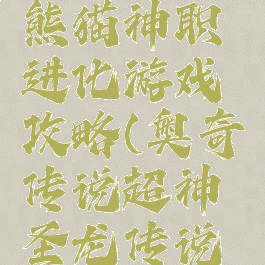 熊猫神职
进化游戏
攻略(奥奇
传说超神
圣龙传说